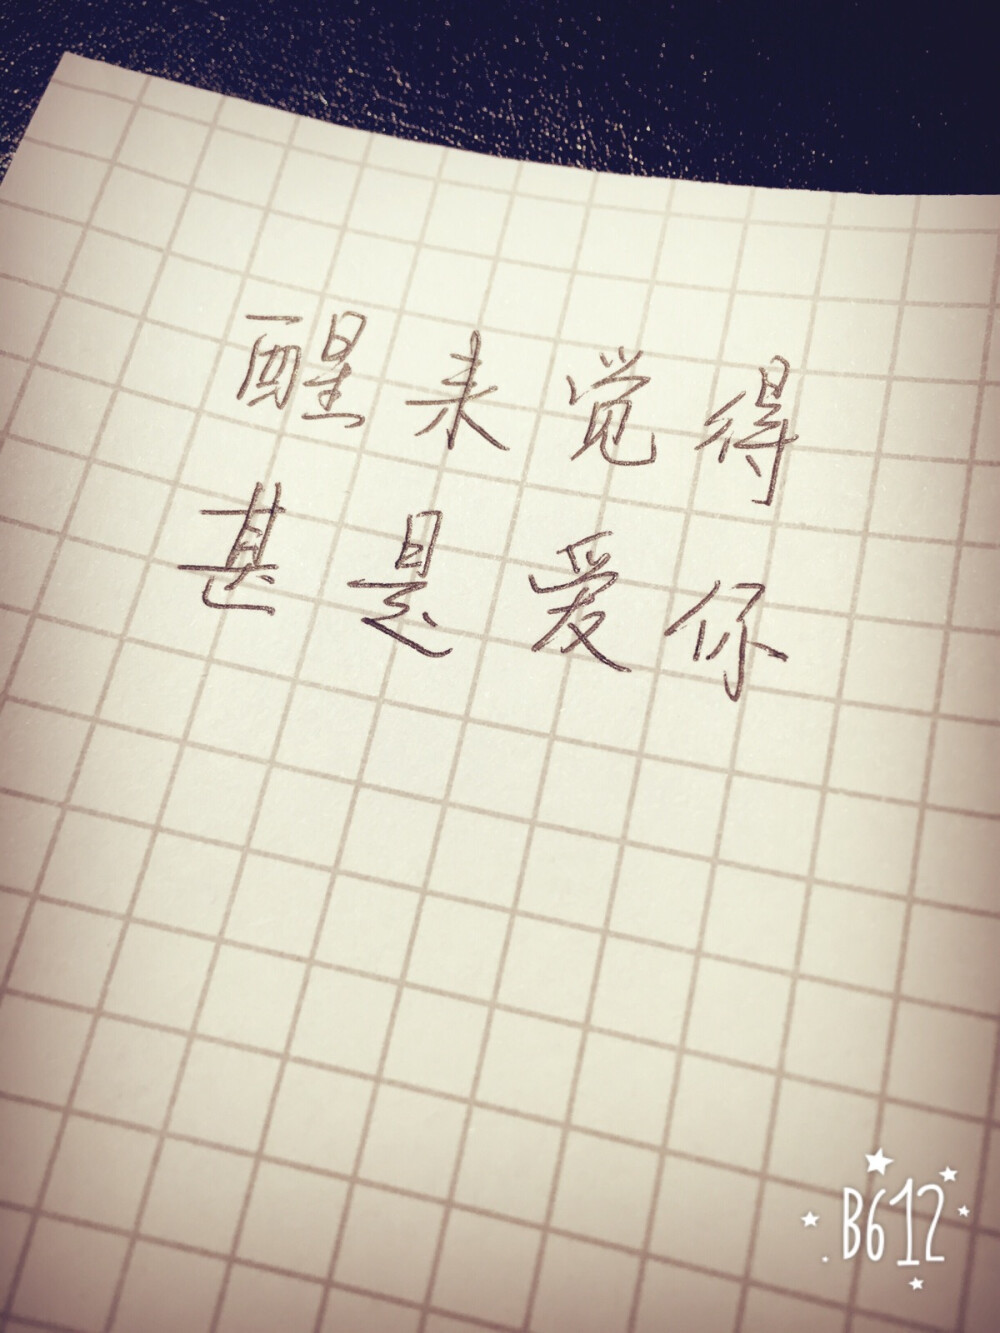 醒来觉得
甚是爱你
B612